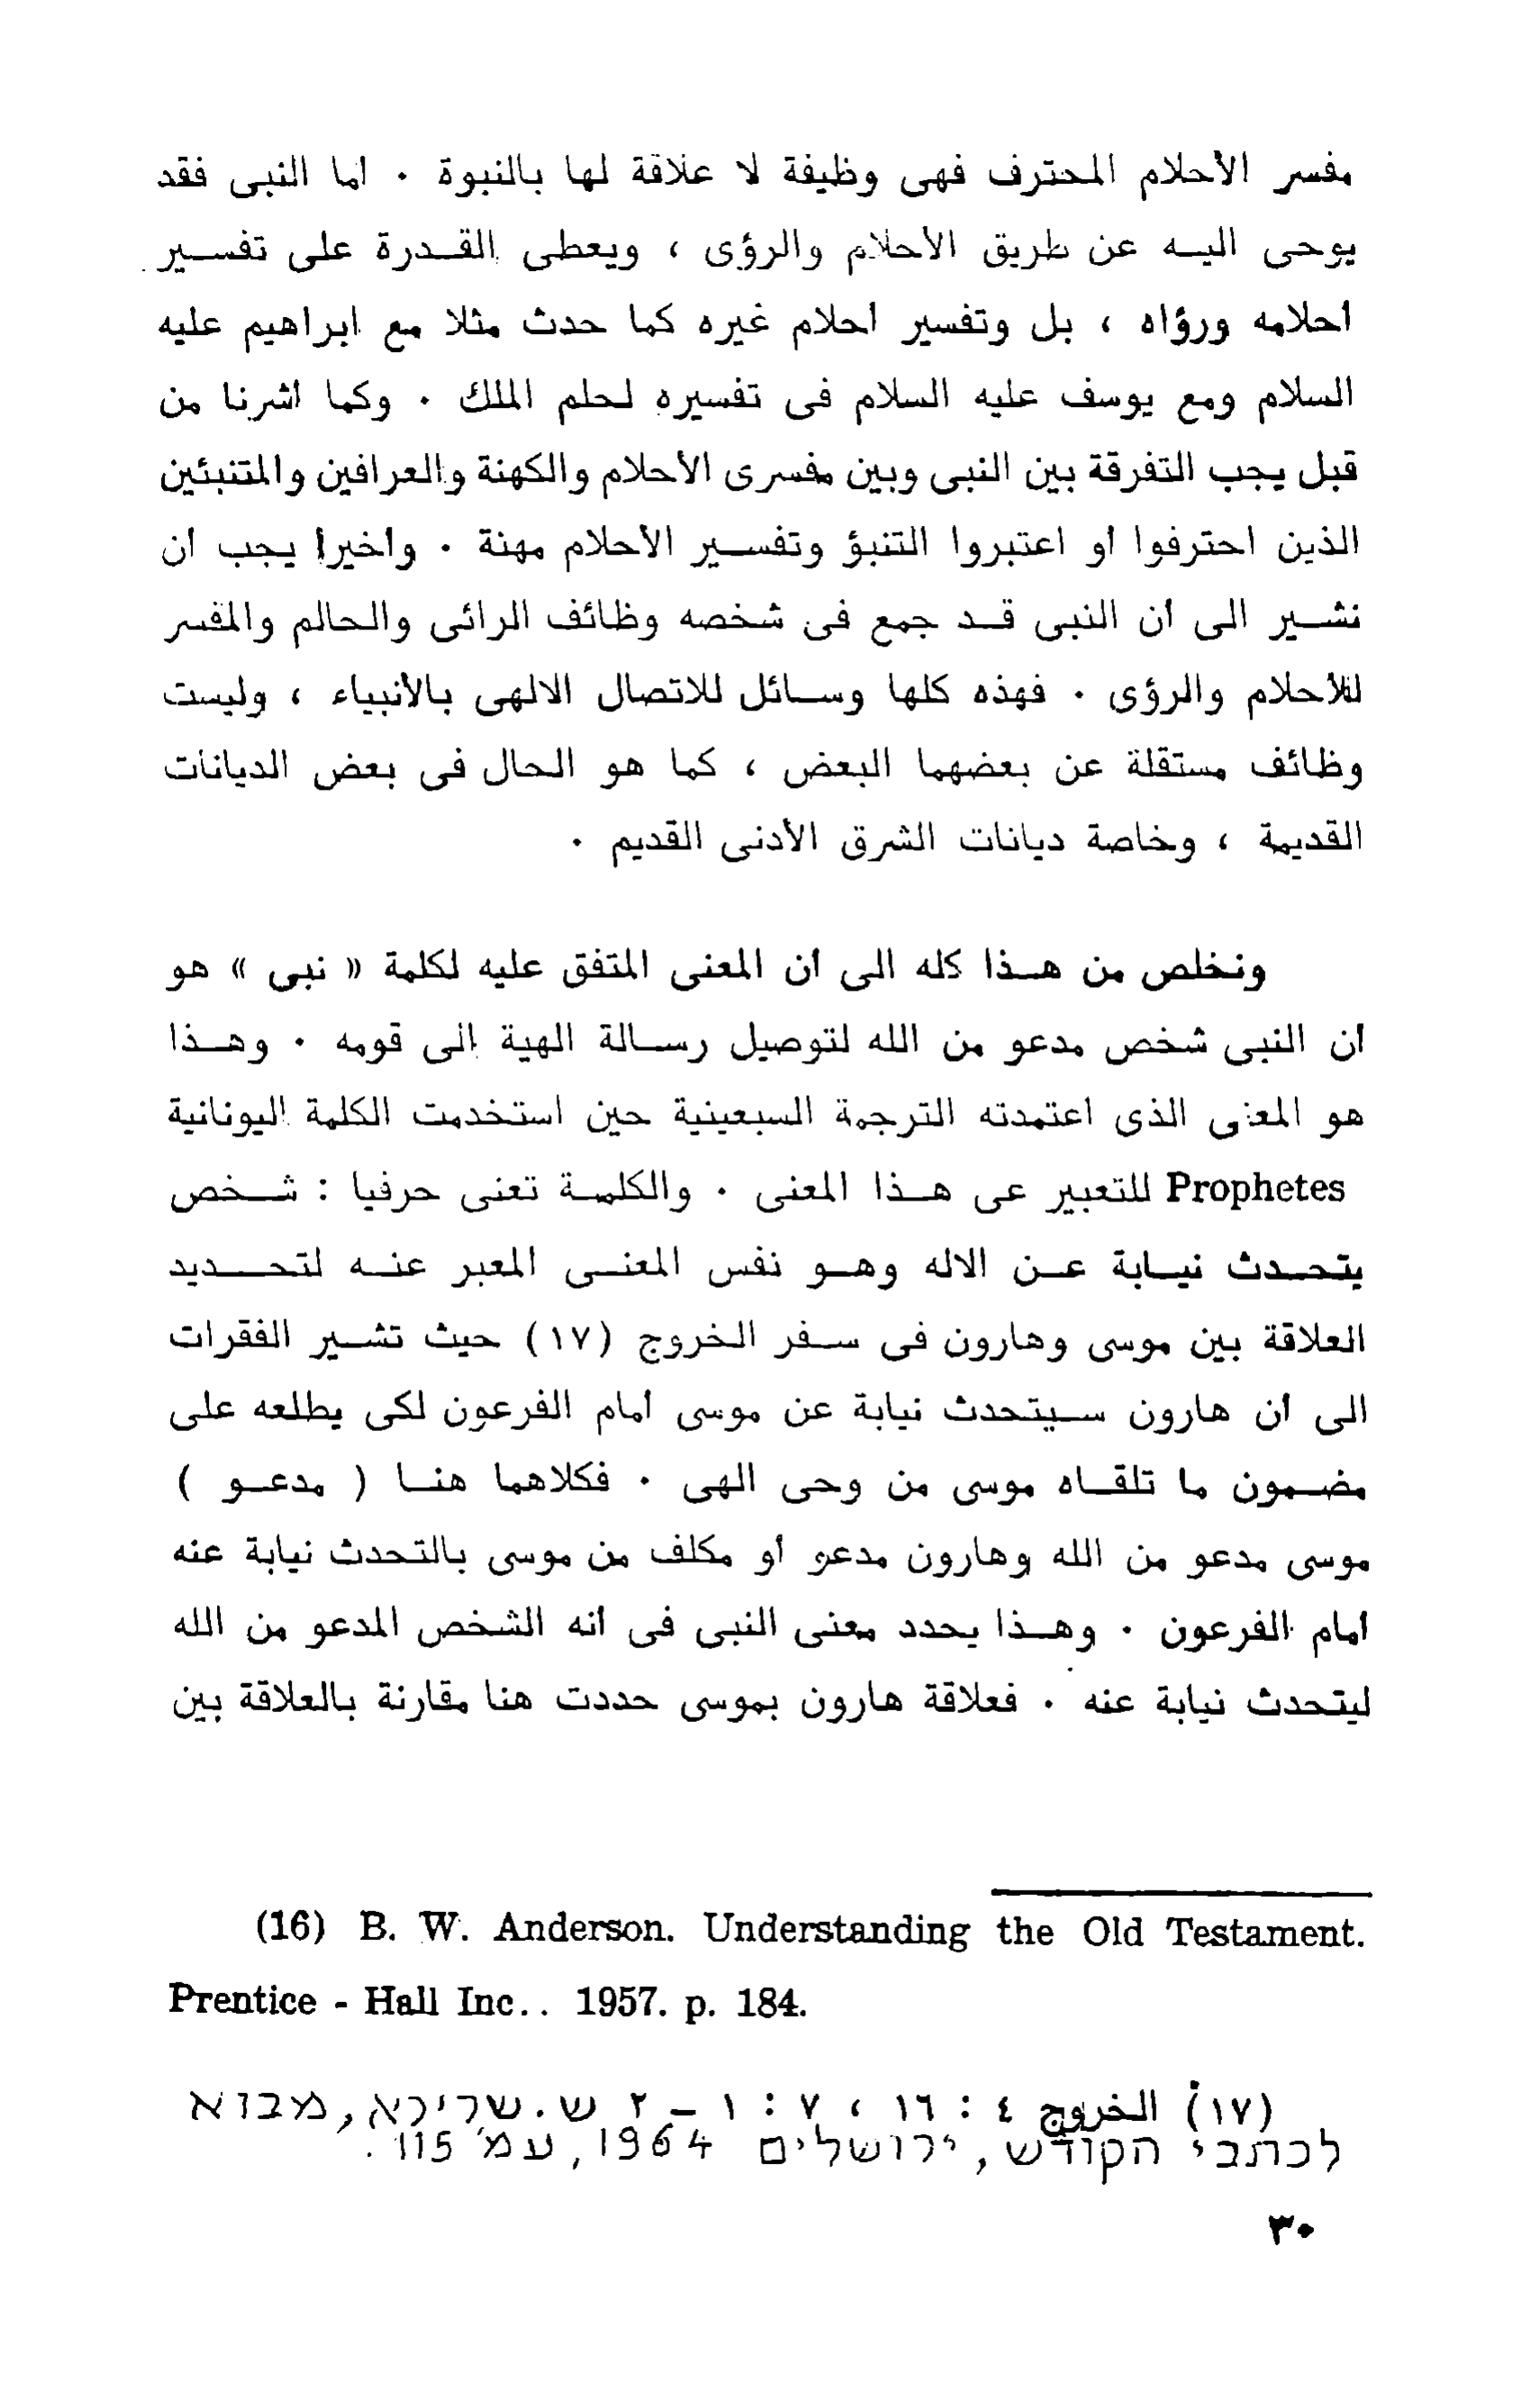 مفسر الأحلام المحترف فهى وظيفة لا علاقة لها بالنبوة ٠ اما النبى فقد
يوحى اليـه عن طريق الأحلام والرؤى ، ويعطى القـدرة على تفسـير
احلامه ورؤاه ، بل وتفسير احلام غيره كما حدث مثلا مع ابراهيم عليه
السلام ومع يوسف عليه السلام فى تفسيره لحلم الملك ٠ وكما اشرنا من
قبل يجب التفرقة بين النبى وبين مفسرى الأحلام والكهنة والعرافين والمتنبئين
الذين احترفوا او اعتبروا التنبؤ وتفسـير الأحلام مهنة ٠ واخيرا يجب ان
نشـير الى ان النبى قـد جمع فى شخصه وظائف الرائى والحالم والمفسر
للأحلام والرؤى ٠ فهذه كلها وسـائل للاتصال الالهى بالأنبياء ، وليست
وظائف مستقلة عن بعضهما البعض ، كما هو الحال فى بعض الديانات
القديمة ، وخاصة ديانات الشرق الأدنى القديم ٠
ونخلص من هـذا كله الى ان المعنى المتفق عليه لكلمة « نبى » هو
ان النبى شخص مدعو من الله لتوصيل رسـالة الهية الى قومه ٠ وهـذا
هو المعنى الذى اعتمدته الترجمة السبعينية حين استخدمت الكلمة اليونانية
Prophetes للتعبير عى هـذا المعنى ٠ والكلمـة تعنى حرفيا : شـخص
يتحـدث نيـابة عـن الاله وهـو نفس المعنـى المعبر عنـه لتحـديد
العلاقة بين موسى وهارون فى سـفر الخروج (١٧) حيث تشـير الفقرات
الى ان هارون سـيتحدث نيابة عن موسى امام الفرعون لكى يطلعه على
مضـمون ما تلقـاه موسى من وحى الهى ٠ فكلاهما هنـا ( مدعـو )
موسى مدعو من الله وهارون مدعو أو مكلف من موسى بالتحدث نيابة عنه
امام الفرعون ٠ وهـذا يحدد معنى النبى فى انه الشخص المدعو من الله
ليتحدث نيابة عنه ٠ فعلاقة هارون بموسى حددت هنا مقارنة بالعلاقة بين
(16) B. W. Anderson. Understanding the Old Testament.
Prentice - Hall Inc.. 1957. p. 184.
(١٧) الخروج ٤ : ١٦ ، ٧ : ١ – ٢ ש. שרירא, מבוא
לכתבי הקודש, ירושלים 1964, עמ׳ 115.
٣٠